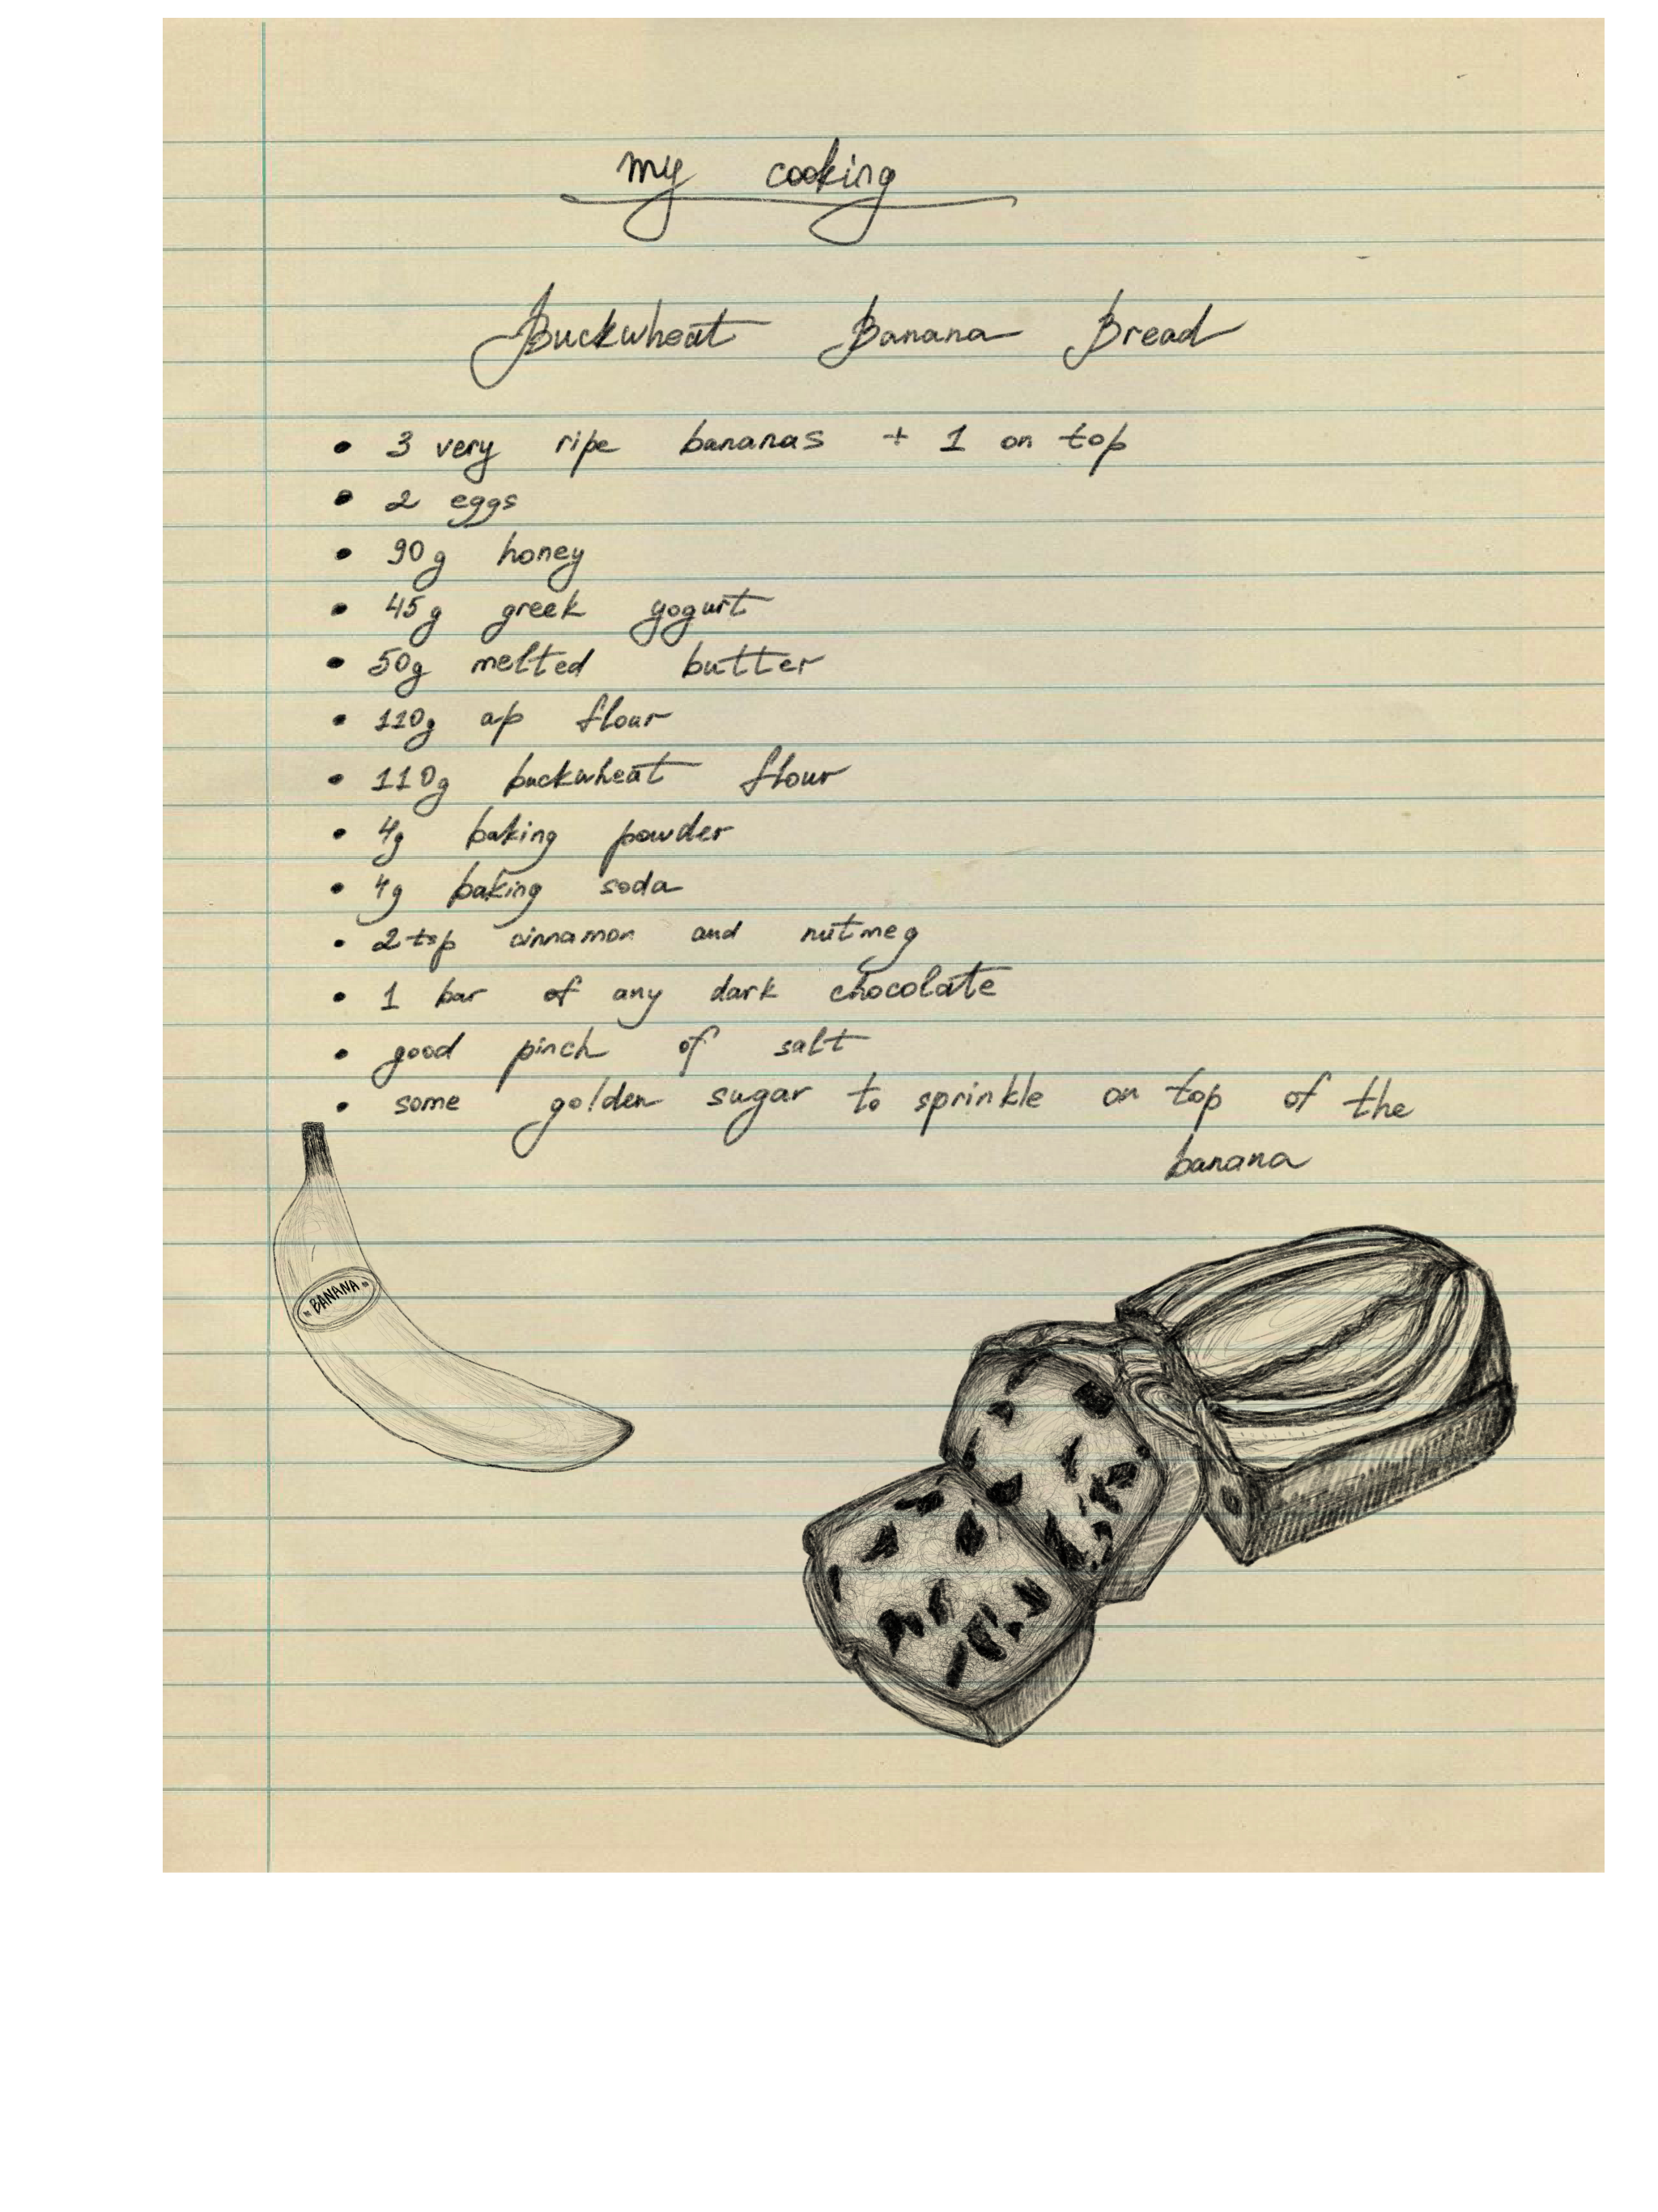 my cooking
Buckwheat Banana Bread
• 3 very ripe bananas + 1 on top
• 2 eggs
• 90g honey
• 45g greek yogurt
• 50g melted butter
• 110g ap flour
• 110g buckwheat flour
• 4g baking powder
• 4g baking soda
• 2 tsp cinnamon and nutmeg
• 1 bar of any dark chocolate
• good pinch of salt
• some golden sugar to sprinkle on top of the
banana
BANANA